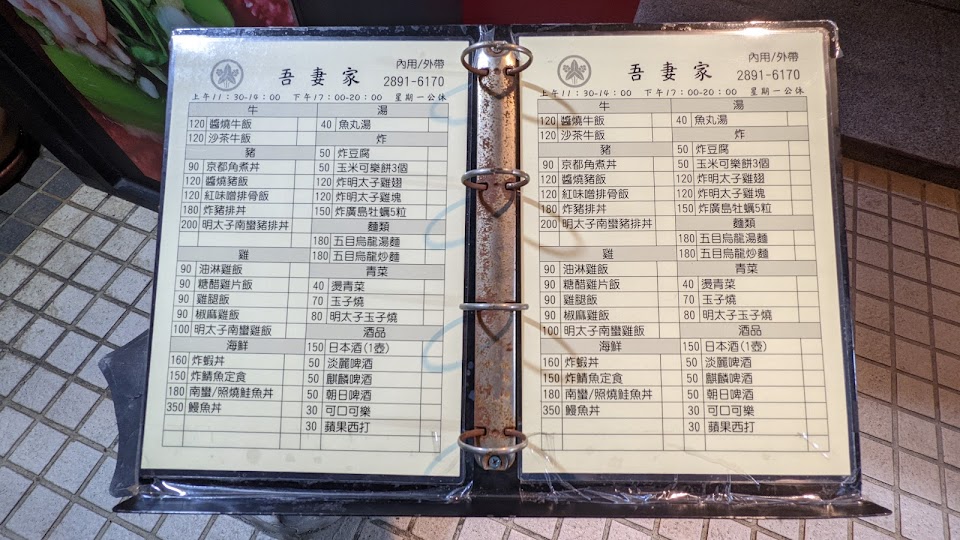 內用/外帶
吾妻家 2891-6170
上午11：30-14：00 下午17：00-20：00 星期一公休
牛 湯
120 醬燒牛飯 40 魚丸湯
120 沙茶牛飯 炸
豬 50 炸豆腐
90 京都角煮丼 50 玉米可樂餅3個
120 醬燒豬飯 120 炸明太子雞翅
120 紅味噌排骨飯 120 炸明太子雞塊
180 炸豬排丼 150 炸廣島牡蠣5粒
200 明太子南蠻豬排丼 麵類
180 五目烏龍湯麵
雞 180 五目烏龍炒麵
90 油淋雞飯 青菜
90 糖醋雞片飯 40 燙青菜
90 雞腿飯 70 玉子燒
90 椒麻雞飯 80 明太子玉子燒
100 明太子南蠻雞飯 酒品
海鮮 150 日本酒(1壺)
160 炸蝦丼 50 淡麗啤酒
150 炸鯖魚定食 50 麒麟啤酒
180 南蠻/照燒鮭魚丼 50 朝日啤酒
350 鰻魚丼 30 可口可樂
30 蘋果西打
內用/外帶
吾妻家 2891-6170
上午11：30-14：00 下午17：00-20：00 星期一公休
牛 湯
120 醬燒牛飯 40 魚丸湯
120 沙茶牛飯 炸
豬 50 炸豆腐
90 京都角煮丼 50 玉米可樂餅3個
120 醬燒豬飯 120 炸明太子雞翅
120 紅味噌排骨飯 120 炸明太子雞塊
180 炸豬排丼 150 炸廣島牡蠣5粒
200 明太子南蠻豬排丼 麵類
180 五目烏龍湯麵
雞 180 五目烏龍炒麵
90 油淋雞飯 青菜
90 糖醋雞片飯 40 燙青菜
90 雞腿飯 70 玉子燒
90 椒麻雞飯 80 明太子玉子燒
100 明太子南蠻雞飯 酒品
海鮮 150 日本酒(1壺)
160 炸蝦丼 50 淡麗啤酒
150 炸鯖魚定食 50 麒麟啤酒
180 南蠻/照燒鮭魚丼 50 朝日啤酒
350 鰻魚丼 30 可口可樂
30 蘋果西打